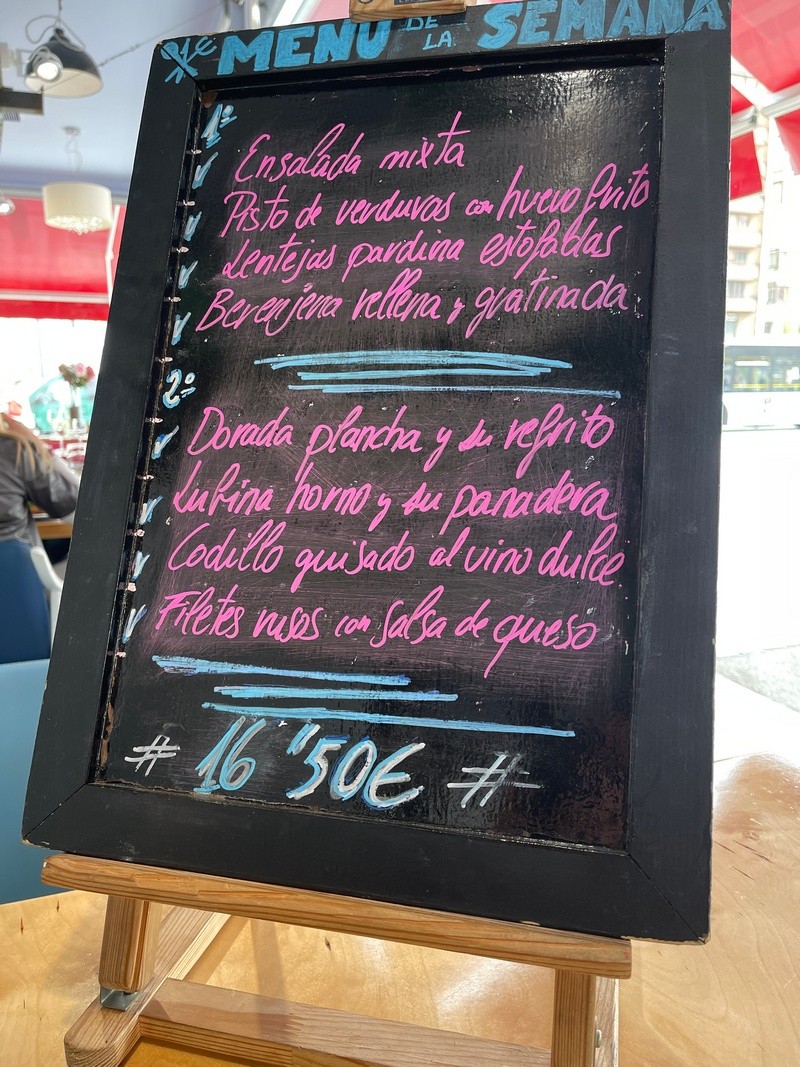 MENÚ DE LA SEMANA
1º
Ensalada mixta
Pisto de verduras con huevo frito
Lentejas pardina estofadas
Berenjena rellena y gratinada
2º
Dorada plancha y su refrito
Lubina horno y su panadera
Codillo guisado al vino dulce
Filetes rusos con salsa de queso
# 16"50€ #